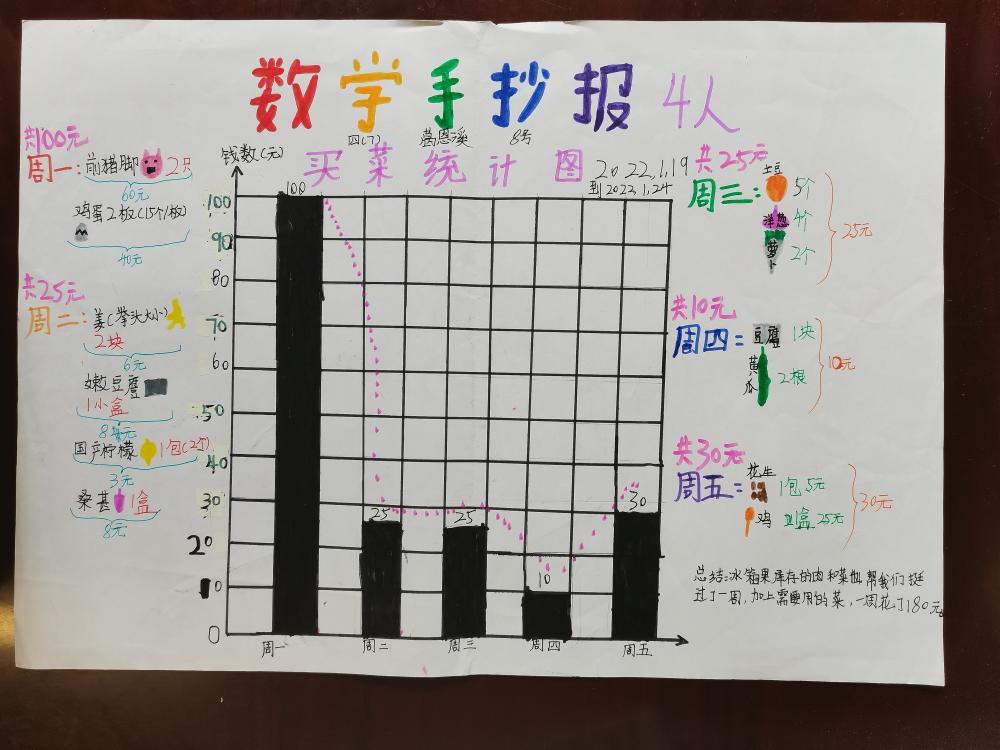 数学手抄报 4人
四(7) 葛恩溪 8号
买菜统计图
2022,1,19
到2022,1,24
钱数(元)
共100元
周一:前猪脚 2只
60元
鸡蛋2板(15个/板)
40元
共25元
周二:姜(拳头大小)
2块
6元
嫩豆腐
1小盒
8元
国产柠檬 1包(2个)
3元
桑葚 1盒
8元
100
100
90
80
70
60
50
40
30
20
10
0
25
25
10
30
周一 周二 周三 周四 周五
共25元
周三:土豆 5个
洋葱 4个
萝卜 2个
25元
共10元
周四=豆腐 1块
黄瓜 2根
10元
共30元
周五=花生 1包 5元
鸡 盒 25元
30元
总结:冰箱里库存的肉和菜也帮我们挺
过了一周,加上需要用的菜,一周花了180元